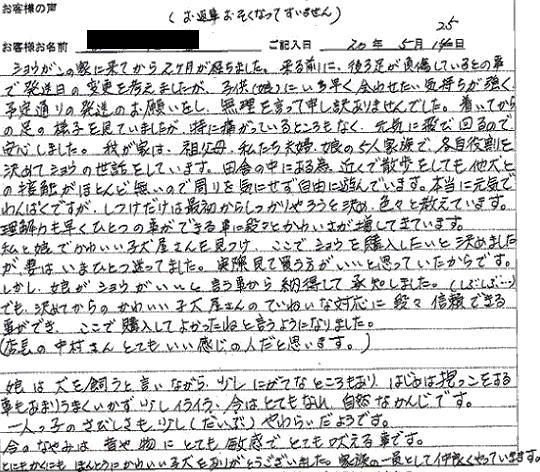 お客様の声
(お返事おそくなってすいません)
お客様お名前
ご記入日 20年 5月 25 日
ショウがこの家に来てから2ヶ月が経ちました。来る前に、後ろ足が負傷しているとの事
で発送日の変更を考えましたが、子供(娘)にいち早く会わせたい気持ちが強く、
予定通りの発送のお願いをし、無理を言って申し訳ありませんでした。着いてから
の足の様子を見ていましたが、特に痛がっているところもなく、元気に飛び回るので
安心しました。我が家は、祖父母、私たち夫婦、娘の5人家族で、各自役割を
決めてショウの世話をしています。田舎の中にある為、近くで散歩をしても他犬と
の接触がほとんど無いので周りを気にせず自由に遊んでいます。本当に元気で
わんぱくですが、しつけだけは最初からしっかりやろうと決め、色々と教えています。
理解力も早くひとつの事ができる事に段々とかわいさが増してきています。
私と娘でかわいい子犬屋さんを見つけ、ここでショウを購入したいと決めました
が、妻はいまひとつ迷ってました。実際見て買う方がいいと思っていたからです。
しかし、娘がショウがいいと言う事から納得して承知しました。(しぶしぶ…)
でも、決めてからのかわいい子犬屋さんのていねいな対応に段々信頼できる
事ができ、ここで購入してよかったねと言うようになりました。
(店長の中村さんとてもいい感じの人だと思います。)
娘は犬を飼うと言いながら、少しにがてなところもあり、はじめは抱っこをする
事もあまりうまくいかず少しイライラ、今はとてもなれ、自然なかんじです。
一人っ子のさびしさも、少し(だいぶ)やわらいだようです。
今のなやみは、音や物にとても敏感でとても吠える事です。
とにもかくにもほんとうにかわいい子犬をありがとうございました。家族の一員として仲良くやっています。